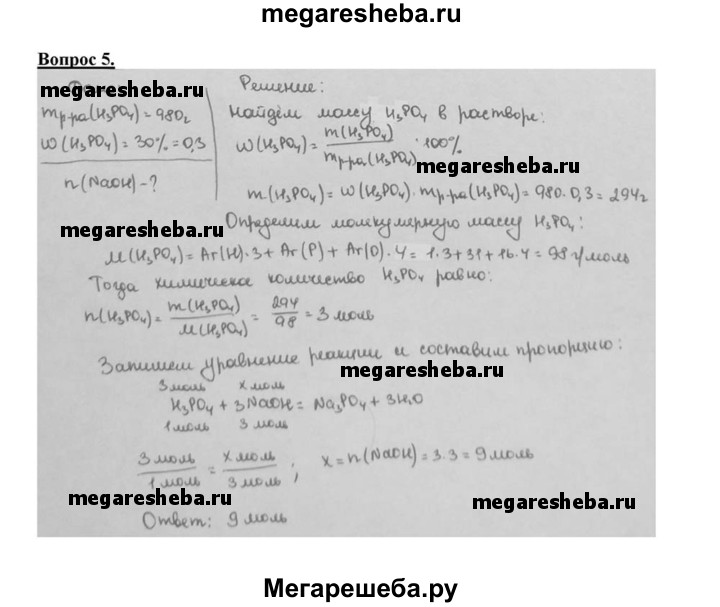 megaresheba.ru
Вопрос 5.
megaresheba.ru
mр-ра(H₃PO₄)=980г
w(H₃PO₄)=30%=0,3
n(NaOH)-?
Решение:
megaresheba.ru
Найдём массу H₃PO₄ в растворе:
w(H₃PO₄)= m(H₃PO₄)/mр-ра(H₃PO₄) · 100%
megaresheba.ru
m(H₃PO₄)=w(H₃PO₄)·mр-ра(H₃PO₄)=980·0,3=294г
megaresheba.ru
Определим молекулярную массу H₃PO₄:
M(H₃PO₄)=Ar(H)·3+Ar(P)+Ar(O)·4=1·3+31+16·4=98г/моль
Тогда химическое количество H₃PO₄ равно:
n(H₃PO₄)= m(H₃PO₄)/M(H₃PO₄) = 294/98 = 3 моль
Запишем уравнение реакции и составим пропорцию:
megaresheba.ru
3 моль x моль
H₃PO₄ + 3NaOH = Na₃PO₄ + 3H₂O
megaresheba.ru
1 моль 3 моль
3 моль/1 моль = x моль/3 моль ; x=n(NaOH)=3·3=9 моль
megaresheba.ru
megaresheba.ru
Ответ: 9 моль
Мегарешеба.ру